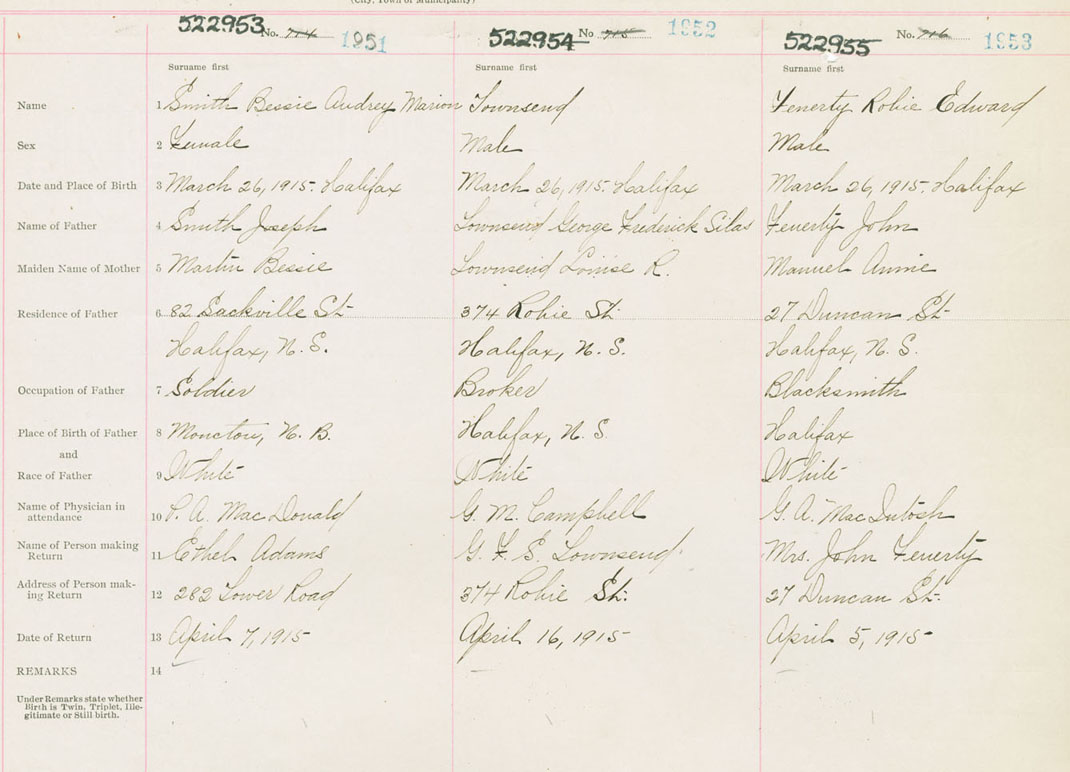 (City, Town or Municipality)
522953 No. 714 1951 522954 No 715 1952 522955 No. 716 1953
Surname first Surname first Surname first
Name 1 Smith Bessie Audrey Marion Townsend Fenerty Robie Edward
Sex 2 Female Male Male
Date and Place of Birth 3 March 26, 1915. Halifax March 26, 1915. Halifax March 26, 1915. Halifax
Name of Father 4 Smith Joseph Townsend George Frederick Silas Fenerty John
Maiden Name of Mother 5 Martin Bessie Townsend Louise R. Manuel Annie
Residence of Father 6 82 Sackville St. 374 Robie St. 27 Duncan St.
Halifax, N. S. Halifax, N. S. Halifax, N. S.
Occupation of Father 7 Soldier Broker Blacksmith
Place of Birth of Father 8 Moncton, N. B. Halifax, N. S Halifax
and
Race of Father 9 White White White
Name of Physician in
attendance 10 P. A. MacDonald G. M. Campbell G. A. MacIntosh
Name of Person making
Return 11 Ethel Adams G. F. S. Townsend. Mrs. John Fenerty
Address of Person mak-
ing Return 12 282 Tower Road 374 Robie St. 27 Duncan St.
Date of Return 13 April 7, 1915 April 16, 1915 April 5, 1915
REMARKS 14
Under Remarks state whether
Birth is Twin, Triplet, Ille-
gitimate or Still birth.